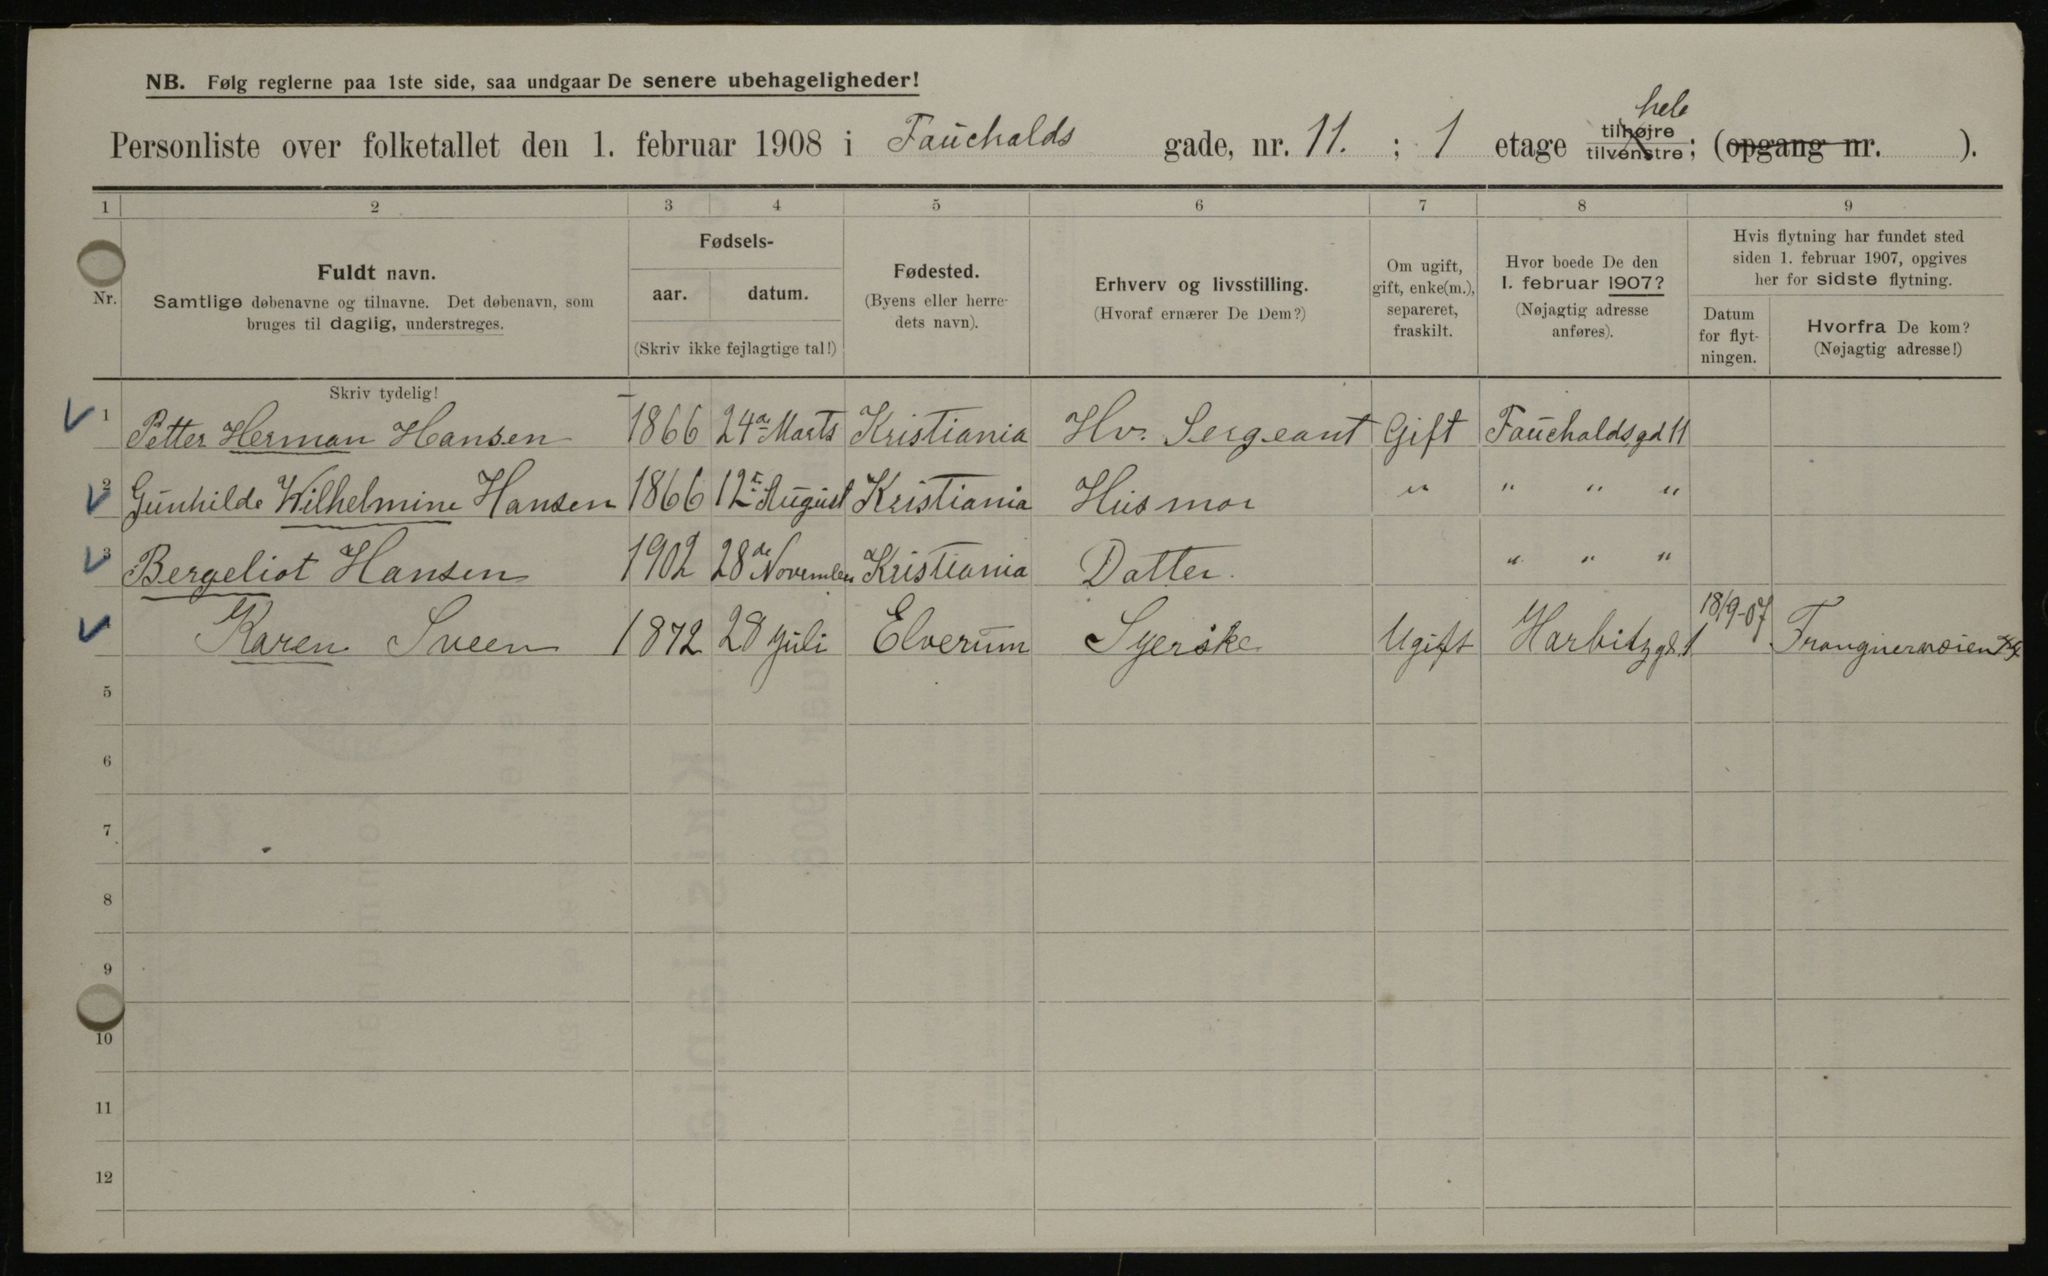 NB. Følg reglerne paa 1ste side, saa undgaar De senere ubehageligheder!
hele
Personliste over folketallet den 1. februar 1908 i Faucholds gade, nr. 11. ; 1 etage tilhøjre tilvenstre; (opgang nr. ).
1 2 3 4 5 6 7 8 9
Nr.
Fuldt navn.
Samtlige døbenavne og tilnavne. Det døbenavn, som
bruges til daglig, understreges.
Fødsels-
aar. datum.
(Skriv ikke fejlagtige tal!)
Fødested.
(Byens eller herre-
dets navn).
Erhverv og livsstilling.
(Hvoraf ernærer De Dem?)
Om ugift,
gift, enke(m.),
separeret,
fraskilt.
Hvor boede De den
1. februar 1907?
(Nøjagtig adresse
anføres).
Hvis flytning har fundet sted
siden 1. februar 1907, opgives
her for sidste flytning.
Datum
for flyt-
ningen.
Hvorfra De kom?
(Nøjagtig adresse!)
Skriv tydelig!
1 Petter Herman Hansen 1866 24de Marts Kristiania Hv. Sergeant Gift Faucholdsgd 11
2 Gunhilde Wilhelmine Hansen 1866 12te August Kristiania Husmor " " " "
3 Bergeliot Hansen 1902 28de November Kristiania Datter. " " "
Karen Sveen 1872 28 Juli Elverum Syerske Ugift Harbitzgd. 1 18/9-07 Frognerveien
5
6
7
8
9
10
11
12